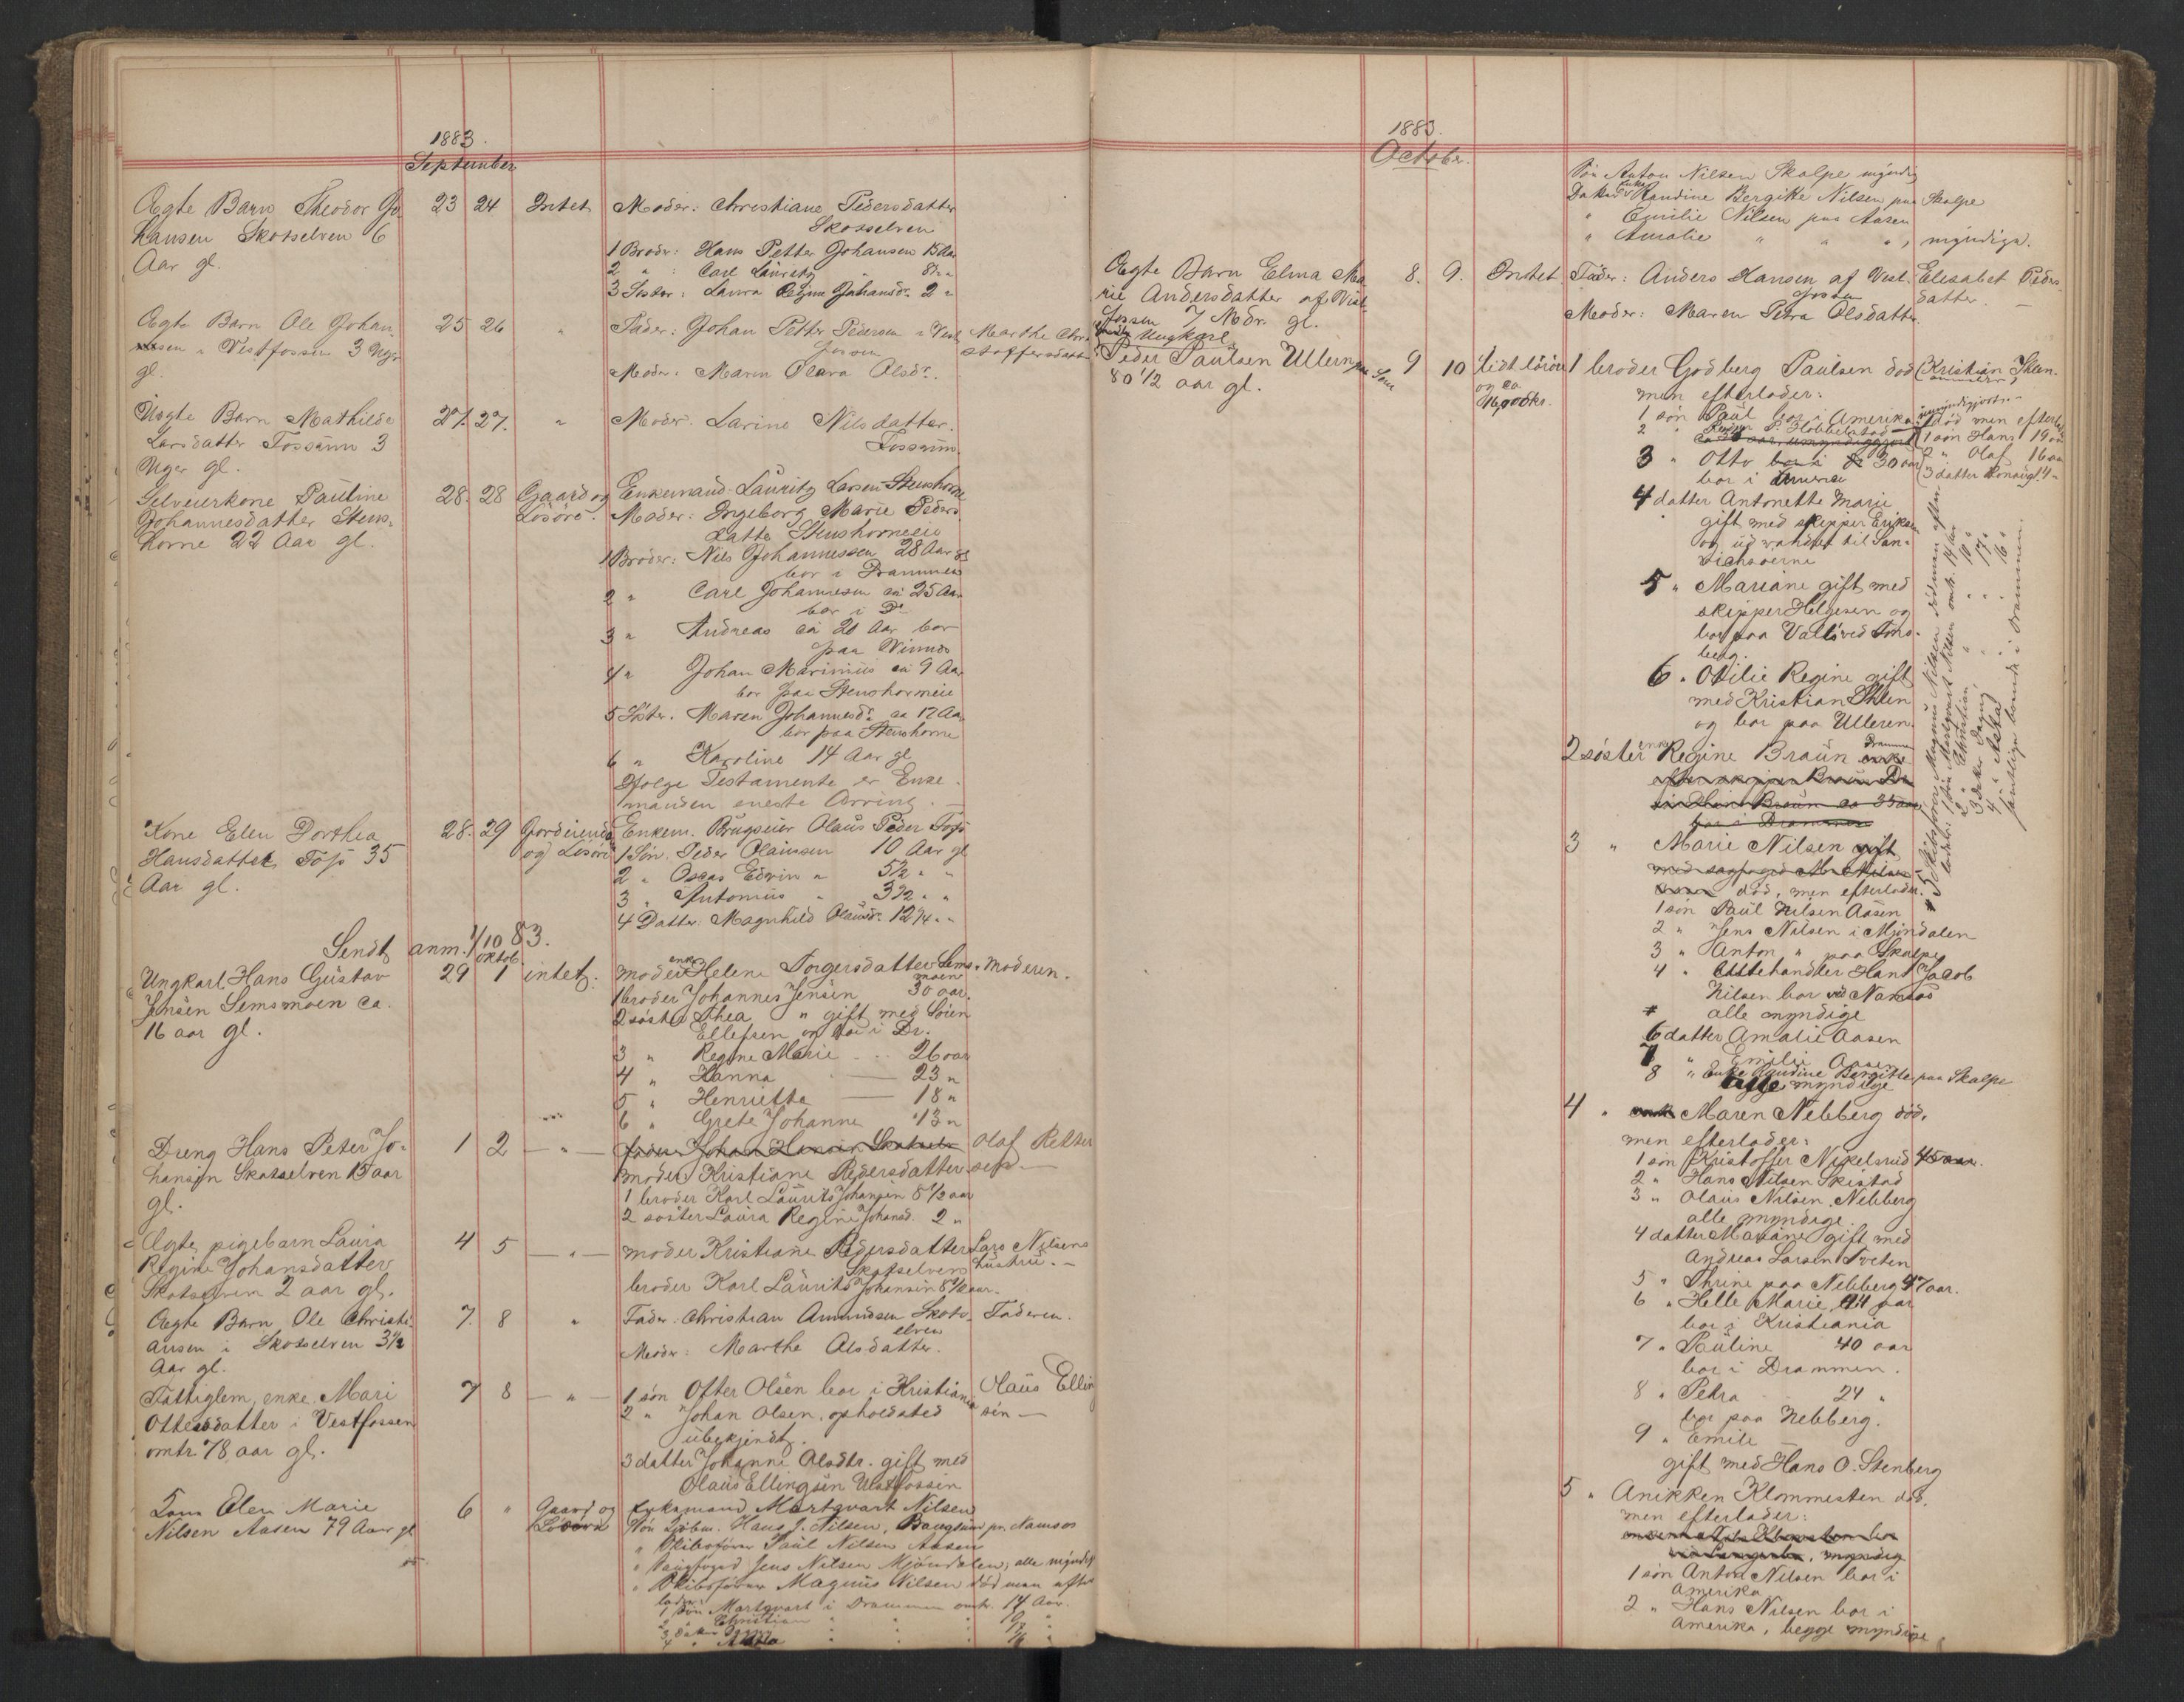 1883.
September
Ægte Barn Theodor Jo
hansen Skotselven 6
Aar gl.
23 24 Intet
Moder: Christiane Pedersdatter
Skotselven
1 Broder: Hans Petter Johansen 13 Aar
2 " : Carl Lauritz " 8½ "
3 Søster: Laura Regine Johansdr. 2 "
Ægte Barn Ole Johan
sen i Vestfossen 3 Uger
gl.
25 26 "
Fader: Johan Petter Pedersen i Vest
fossen
Moder: Maren Olava Olsdr.
Marthe Chri
stoffersdatter
Uægte Barn Mathilde
Larsdatter Fossum 3
Uger gl.
27. 27. "
Moder. Larine Nilsdatter.
Fossum.
Selveierkone Pauline
Johannesdatter Stens-
horne 22 Aar gl.
28. 28 Gaard og
Løsøre.
Enkemand: Lauritz Larsen Stenshorne
Moder: Ingeborg Marie Peders
datter Stenshorneeie
1 Broder: Nils Johannessen 28 Aar gl
bor i Drammen
2 " Carl Johannesen ca 25 Aar
bor i Do
3 " Andreas ca 20 Aar bor
paa
4 " Johan Marinius ca 9 Aar
bor paa Stenshorneie
5 Søster. Maren Johannesdr. ca 17 Aar
bor paa Stenshorne
6 " Karoline 14 Aar gl
Ifølge Testamente er Enke-
manden eneste Arving. —
Kone Elen Dorthea
Hansdatter Føsø 35
Aar gl.
28. 29 Jordeiendo
og Løsøre
Enkem. Brugseier Olaus Peder
1 Søn. Peder Olaussen 10 Aar gl
2 " Oscar Edvin " 5½ " "
3 " Antonius " 3½ " "
4 Datter Magnhild Olausdr. 12¼ " "
Sendt anm. 1/10 83.
oktob
Ungkarl Hans Gustav
Jensen Semsmoen ca.
16 aar gl.
29 1 intet.
moder enke Helene Torgersdatter Sems-
moen
moderen.
1 broder Johannes Jensen 30 aar.
2 søster Thea " gift med Søren
Ellefsen og bor i Dr.
3 " Regine Marie 26 aar
4 " Hanna — 23 "
5 " Henriette — 18 "
6 " Grete Johanne 13 "
Dreng Hans Peter Jo-
hansen Skotselven 13 aar
gl.
1 2 — " —
moder Kristiane Pedersdatter
Olaf Petter
sen —
1 broder Karl Laurits Johansen 8½ aar
2 søster Laura Regine Johansd. 2 "
Ægte pigebarn Laura
Regine Johansdatter
Skotselven 2 aar gl.
4 5 — " —
moder Kristiane Pedersdatter
Skotselven
Lars Nilsens
hustru. —
broder Karl Laurits Johansen 8½ aar.
Ægte Barn Ole Christi-
ansen i Skotselven 3½
Aar gl.
7. 8 "
Fader. Christian Amundsen Skots-
elven
Faderen.
Moder: Marthe Olsdatter.
Fattiglem, enke Mari
Ottersdatter i Vestfossen
omtr. 78 aar gl.
7 8 — " —
1 søn Otter Olsen bor i Kristiania
Olaus Elling
sen —
2 " Johan Olsen, opholdsted
ubekjendt.
3 datter Johanne Olsdtr. gift med
Olaus Ellingsen Vestfossen
Kone Elen Marie
Nilsen Aasen 79 Aar gl
6 " Gaard og
Løsøre
Enkemand Martqvart Nilsen
Søn Hans J. Nilsen, pr. Namsos
" Skibsfører Paul Nilsen Aasen
" Jens Nilsen Mjøndalen, alle myndige
" Skibsfører Magnus Nilsen død men efter
lader:
1 Søn Martqvart i Drammen omtr. 14 Aar.
2 " Christian " " " 10 "
3 Dater Dagny " " " 17 "
4 " Astta " " " 16 "
1883.
October.
Søn Anton Nilsen Skalpe myndig
Dater Enke Randine Bergitte Nilsen paa Skalpe
" Emilie Nilsen paa Aasen
" Amalie " " ", myndige.
Ægte Barn Elma Ma
rie Andersdatter af Vest-
fossen 7 Mdr. gl.
8. 9. Intet
Fader: Anders Hansen af Vest-
fossen
Elisabet Peders
datter. —
Moder: Maren Petra Olsdatter.
Ungkarl
Peder Paulsen Ullern paa Sem
80 1/2 aar gl.
9 10 Lidt løsøre
og ca.
16,000 kr.
1 broder Godberg Paulsen død
men efterlader:
Kristian Ihlen.
1 søn Paul bor i Amerika
2 " P. Hobbelstad
3 " Otto 30 aar
bor i Amerika
død men efterlader
1 søn Hans 19 aar
2 " Olaf 16 aar
3 datter 4 "
4 datter Antonette Marie
gift med skipper Eriksen
og udvandret til San-
vichøerne
5 " Mariane gift med
skipper Helgesen og
bor paa Vallø ved Tøns-
berg.
6 " Otilie Regine gift
med Kristian Ihlen
og bor paa Ulleren.
2 søster enke Regine Braun Drammen
3 " Marie Nilsen
død, men efterlader.
1 søn Paul Nilsen Aasen
2 " Jens Nilsen i Mjøndalen
3 " Anton " paa Skalpe
4 " Hans Jacob
Nilsen bor ved Namsos
# alle myndige
6 datter Amalie Aasen
7 " Emilie Aasen
8 " Enke Randine Bergitte paa Skalpe
alle myndige
# 5 Skibsfører Magnus Nilsen død men efter-
lader: 1 søn Martqvart Nilsen omtr. 14 aar
2 " Christian " " 10 "
3 Dater Dagny " " 17 "
4 " Astta " " 16 "
samtlige boende i Drammen.
4 " Maren Nebberg død,
men efterlader:
1 søn Kristoffer Nekelsrud 45 aar.
2 " Hans Nilsen Skistad
3 " Olaus Nilsen Nebberg
alle myndige.
4 datter Mariane gift med
Andreas Larsen Tveten
5 " Thrine paa Nebberg 47 aar.
6 " Helle Marie 44 aar
bor i Kristiania
7 " Pauline 40 aar
bor i Drammen.
8 " Petra 24 "
bor paa Nebberg.
9 " Emile —
gift med Hans O. Stenberg
5 " Anikken Klommesten død,
men efterlader:
1 søn Anton Nilsen bor i
Amerika
2 " Hans Nilsen bor i
Amerika, begge myndige